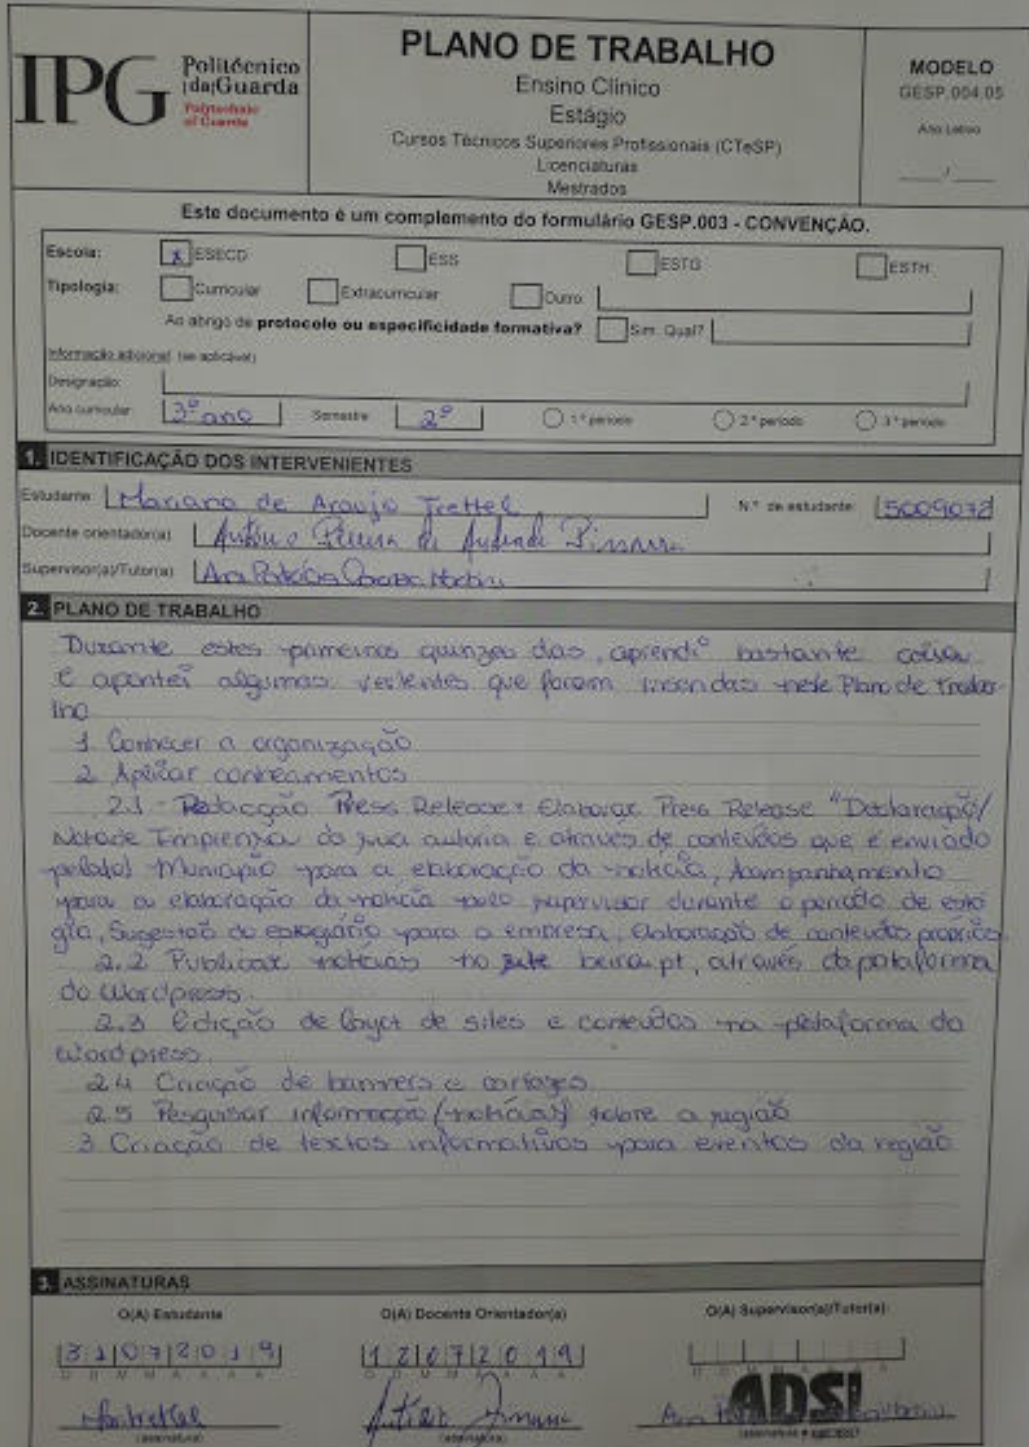 IPG Politécnico da Guarda
Polytechnic of Guarda
PLANO DE TRABALHO
Ensino Clínico
Estágio
Cursos Técnicos Superiores Profissionais (CTeSP)
Licenciaturas
Mestrados
MODELO
GESP.004.05
Ano Letivo
____/____
Este documento é um complemento do formulário GESP.003 - CONVENÇÃO.
Escola: x ESECD ESS ESTG ESTH
Tipologia: Curricular Extracurricular Outro:
Ao abrigo de protocolo ou especificidade formativa? Sim. Qual?
Informação adicional (se aplicável)
Designação:
Ano curricular 3º ano Semestre 2º 1º período 2º período 3º período
1. IDENTIFICAÇÃO DOS INTERVENIENTES
Estudante: Mariana de Araujo Trettel N.º de estudante: 5009072
Docente orientador(a) António Pereira de Andrade Pissarra
Supervisor(a)/Tutor(a) Ana Patrícia Martins
2. PLANO DE TRABALHO
Durante estes primeiros quinzes dias, aprendi bastante coisa
e apontei algumas vertentes que foram inseridas neste Plano de Traba-
lho
1 Conhecer a organização
2 Aplicar conhecimentos
2.1 - Redacção Press Release: Elaborar Press Release "Declaração/
Nota de Imprensa da sua autoria e através de conteúdos que é enviado
pela(o) Município para a elaboração da notícia, Acompanhamento
para a elaboração da notícia pelo supervisor durante o período de está
gio, Sugestão do estagiário para a empresa, Elaboração de conteúdos próprios
2.2 Publicar notícias no site beira.pt, através da plataforma
do Wordpress.
2.3 Edição de layot de sites e conteúdos na plataforma do
Wordpress.
2.4 Criação de banners e cartazes
2.5 Pesquisar informação (notícias) sobre a região
3 Criação de textos informativos para eventos da região
3. ASSINATURAS
O(A) Estudante O(A) Docente Orientador(a) O(A) Supervisor(a)/Tutor(a)
31072019 12072019
D D M M A A A A D D M M A A A A D D M M A A A A
ADSI
(assinatura) (assinatura) (assinatura